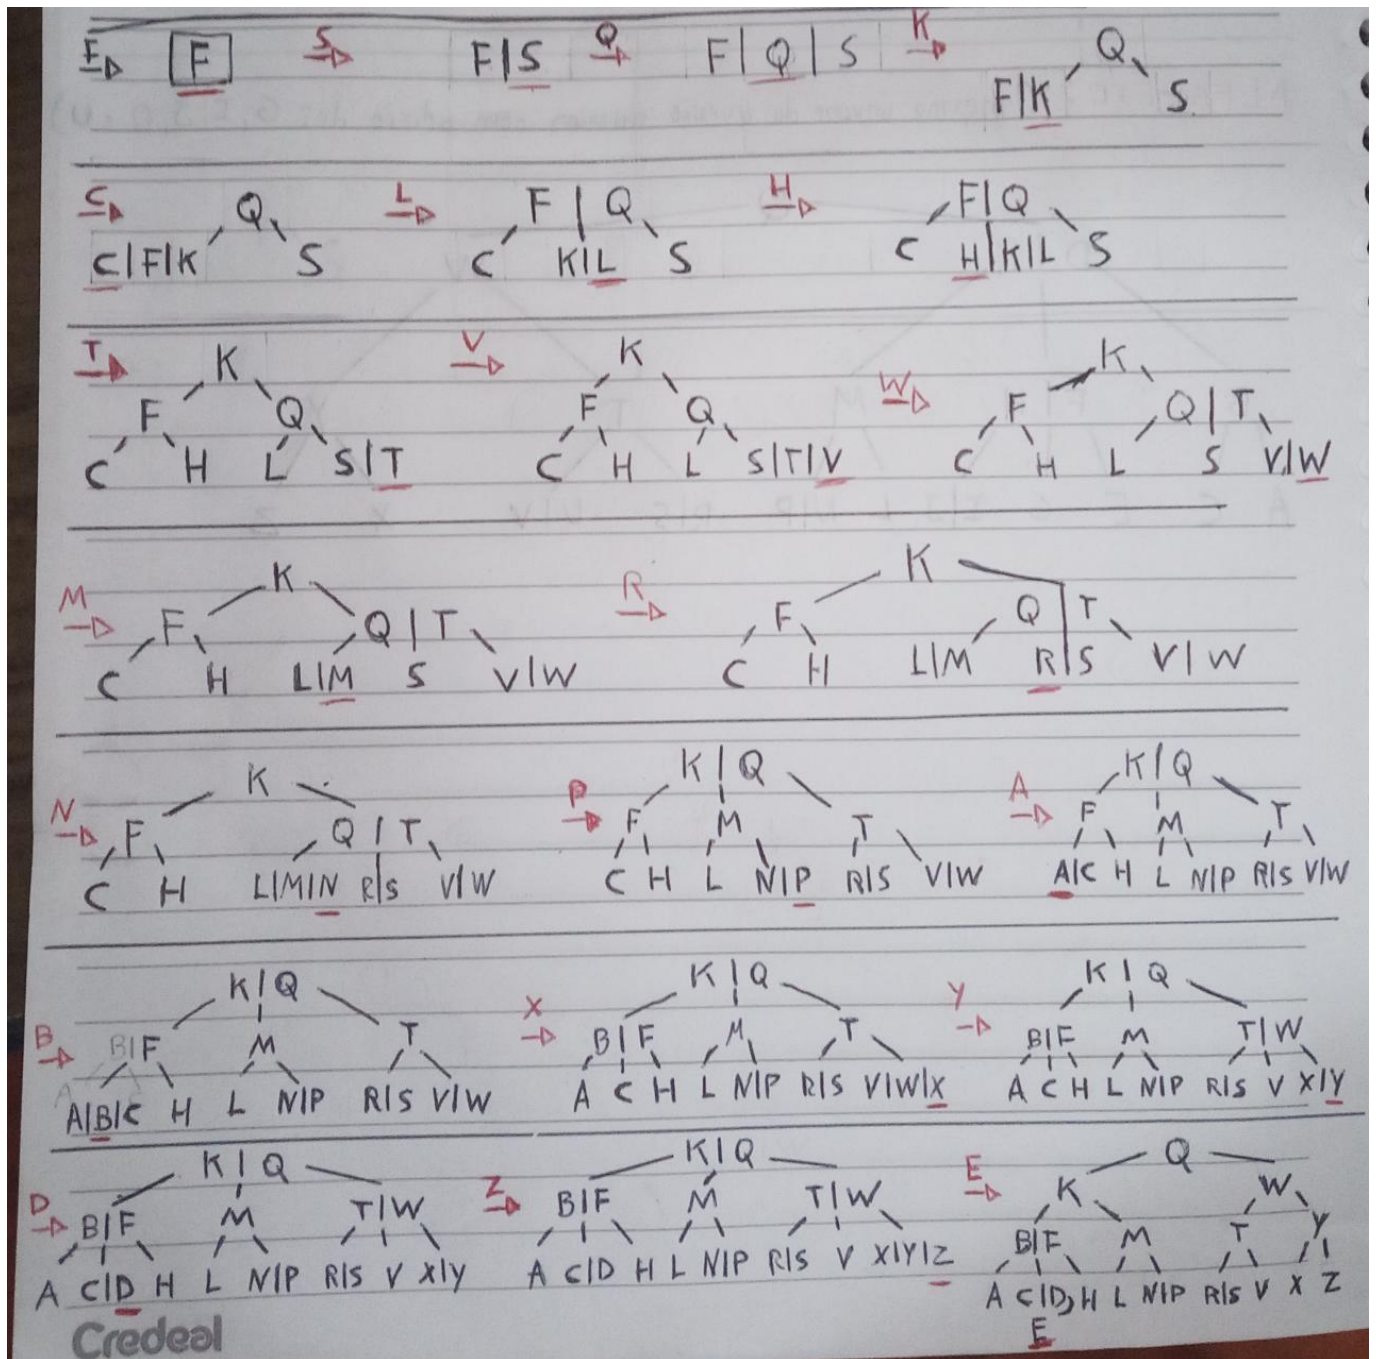 F F S F|S Q F|Q|S K Q
F|K S
C Q L F|Q H F|Q
C|F|K S C K|L S C H|K|L S
T K V K W K
F Q F Q F Q|T
C H L S|T C H L S|T|V C H L S V|W
M K R K
F Q|T F Q|T
C H L|M S V|W C H L|M R|S V|W
N K P K|Q A K|Q
F Q|T F M T F M T
C H L|M|N R|S V|W C H L N|P R|S V|W A|C H L N|P R|S V|W
B K|Q X K|Q Y K|Q
B|F M T B|F M T B|F M T|W
A|B|C H L N|P R|S V|W A C H L N|P R|S V|W|X A C H L N|P R|S V X|Y
D K|Q Z K|Q E Q
K W
B|F M T|W B|F M T|W B|F M T Y
A C|D H L N|P R|S V X|Y A C|D H L N|P R|S V X|Y|Z A C|D, H L N|P R|S V X Z
E
Credeal